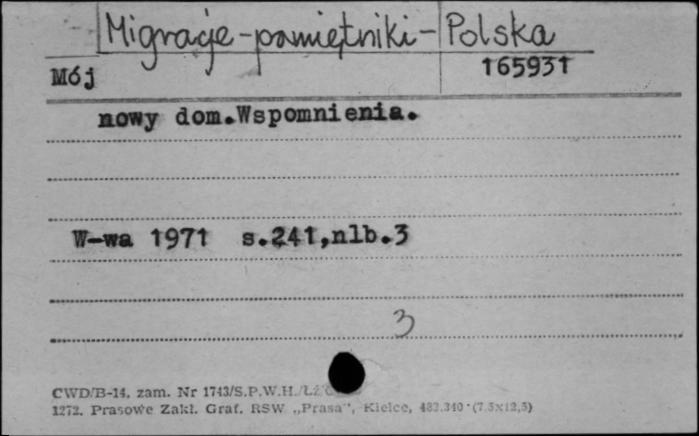 Migracje-pamiętniki-Polska
Mój 165931
nowy dom.Wspomnienia.
W-wa 1971 s.241,nlb.3
3
CWD/B-14, zam. Nr 1743/S.P.W.H.
1272. Prasowe Zakł. Graf. RSW „Prasa", Kielce, 483.340 (7,5x12,5)